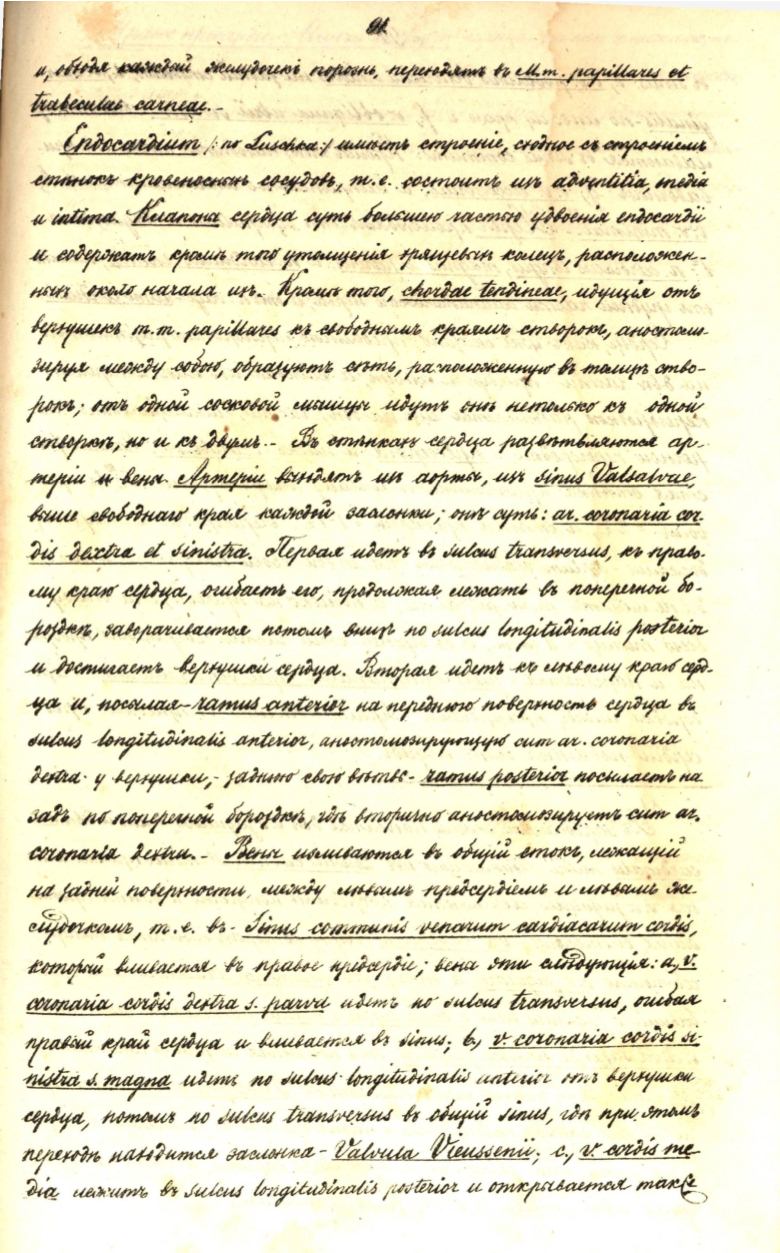 91.
и, обходя каждый желудочекъ порознь, переходятъ въ M.m. papillares et
trabeculae carneae.-
Endocardium /: по Luschka:/ имѣетъ строеніе, сходное съ строеніемъ
стѣнокъ кровеносныхъ сосудовъ, т.е. состоитъ изъ adventitia, media
и intima. Клапаны сердца суть большею частью удвоенія ендосардіи
и содержатъ кромѣ того утолщенія хрящевыхъ колецъ, расположен-
ныхъ около начала ихъ.- Кромѣ того, chordae tendineae, идущія отъ
верхушекъ m.m. papillares къ свободнымъ краямъ створокъ, анастомо-
зируя между собою, образуютъ сѣть, расположенную въ толщѣ ство-
рокъ; отъ одной сосковой мышцы идутъ онѣ нетолько къ одной
створкѣ, но и къ двумъ.- Въ стѣнкахъ сердца развѣтвляются ар-
теріи и вены. Артеріи выходятъ изъ аорты, изъ sinus Valsalvae,
выше свободнаго края каждой заслонки; онѣ суть: ar. coronaria cor-
dis dextra et sinistra. Первая идетъ въ sulcus transversus, къ право-
му краю сердца, огибаетъ его, продолжая лежать въ поперечной бо-
роздкѣ, заворачивается потомъ внизъ по sulcus longitudinalis posterior
и достигаетъ верхушки сердца. Вторая идетъ къ лѣвому краю серд-
ца и, посылая- ramus anterior на переднюю поверхность сердца въ
sulcus longitudinalis anterior, анастомозирующую cum ar. coronaria
dextra у верхушки,- заднюю свою вѣтвь- ramus posterior посылаетъ на
задъ по поперечной бороздкѣ, гдѣ вторично анастомозируетъ cum ar.
coronaria dextra.- Вены изливаются въ общій стокъ, лежащій
на задней поверхности между лѣвымъ предсердіемъ и лѣвымъ же-
лудочкомъ, т.е. въ- Sinus communis venarum cardiacarum cordis,
который вливается въ правое предсердіе; вены эти слѣдующія: a, v.
coronaria cordis dextra s. parva идетъ по sulcus transversus, огибая
правый край сердца и вливается въ sinus; b, v. coronaria cordis si-
nistra s. magna идетъ по sulcus longitudinalis anterior отъ верхушки
сердца, потомъ по sulcus transversus въ общій sinus, гдѣ при этомъ
переходѣ находится заслонка- Valvula Vieussenii; c, v. cordis me-
dia лежитъ въ sulcus longitudinalis posterior и открывается также